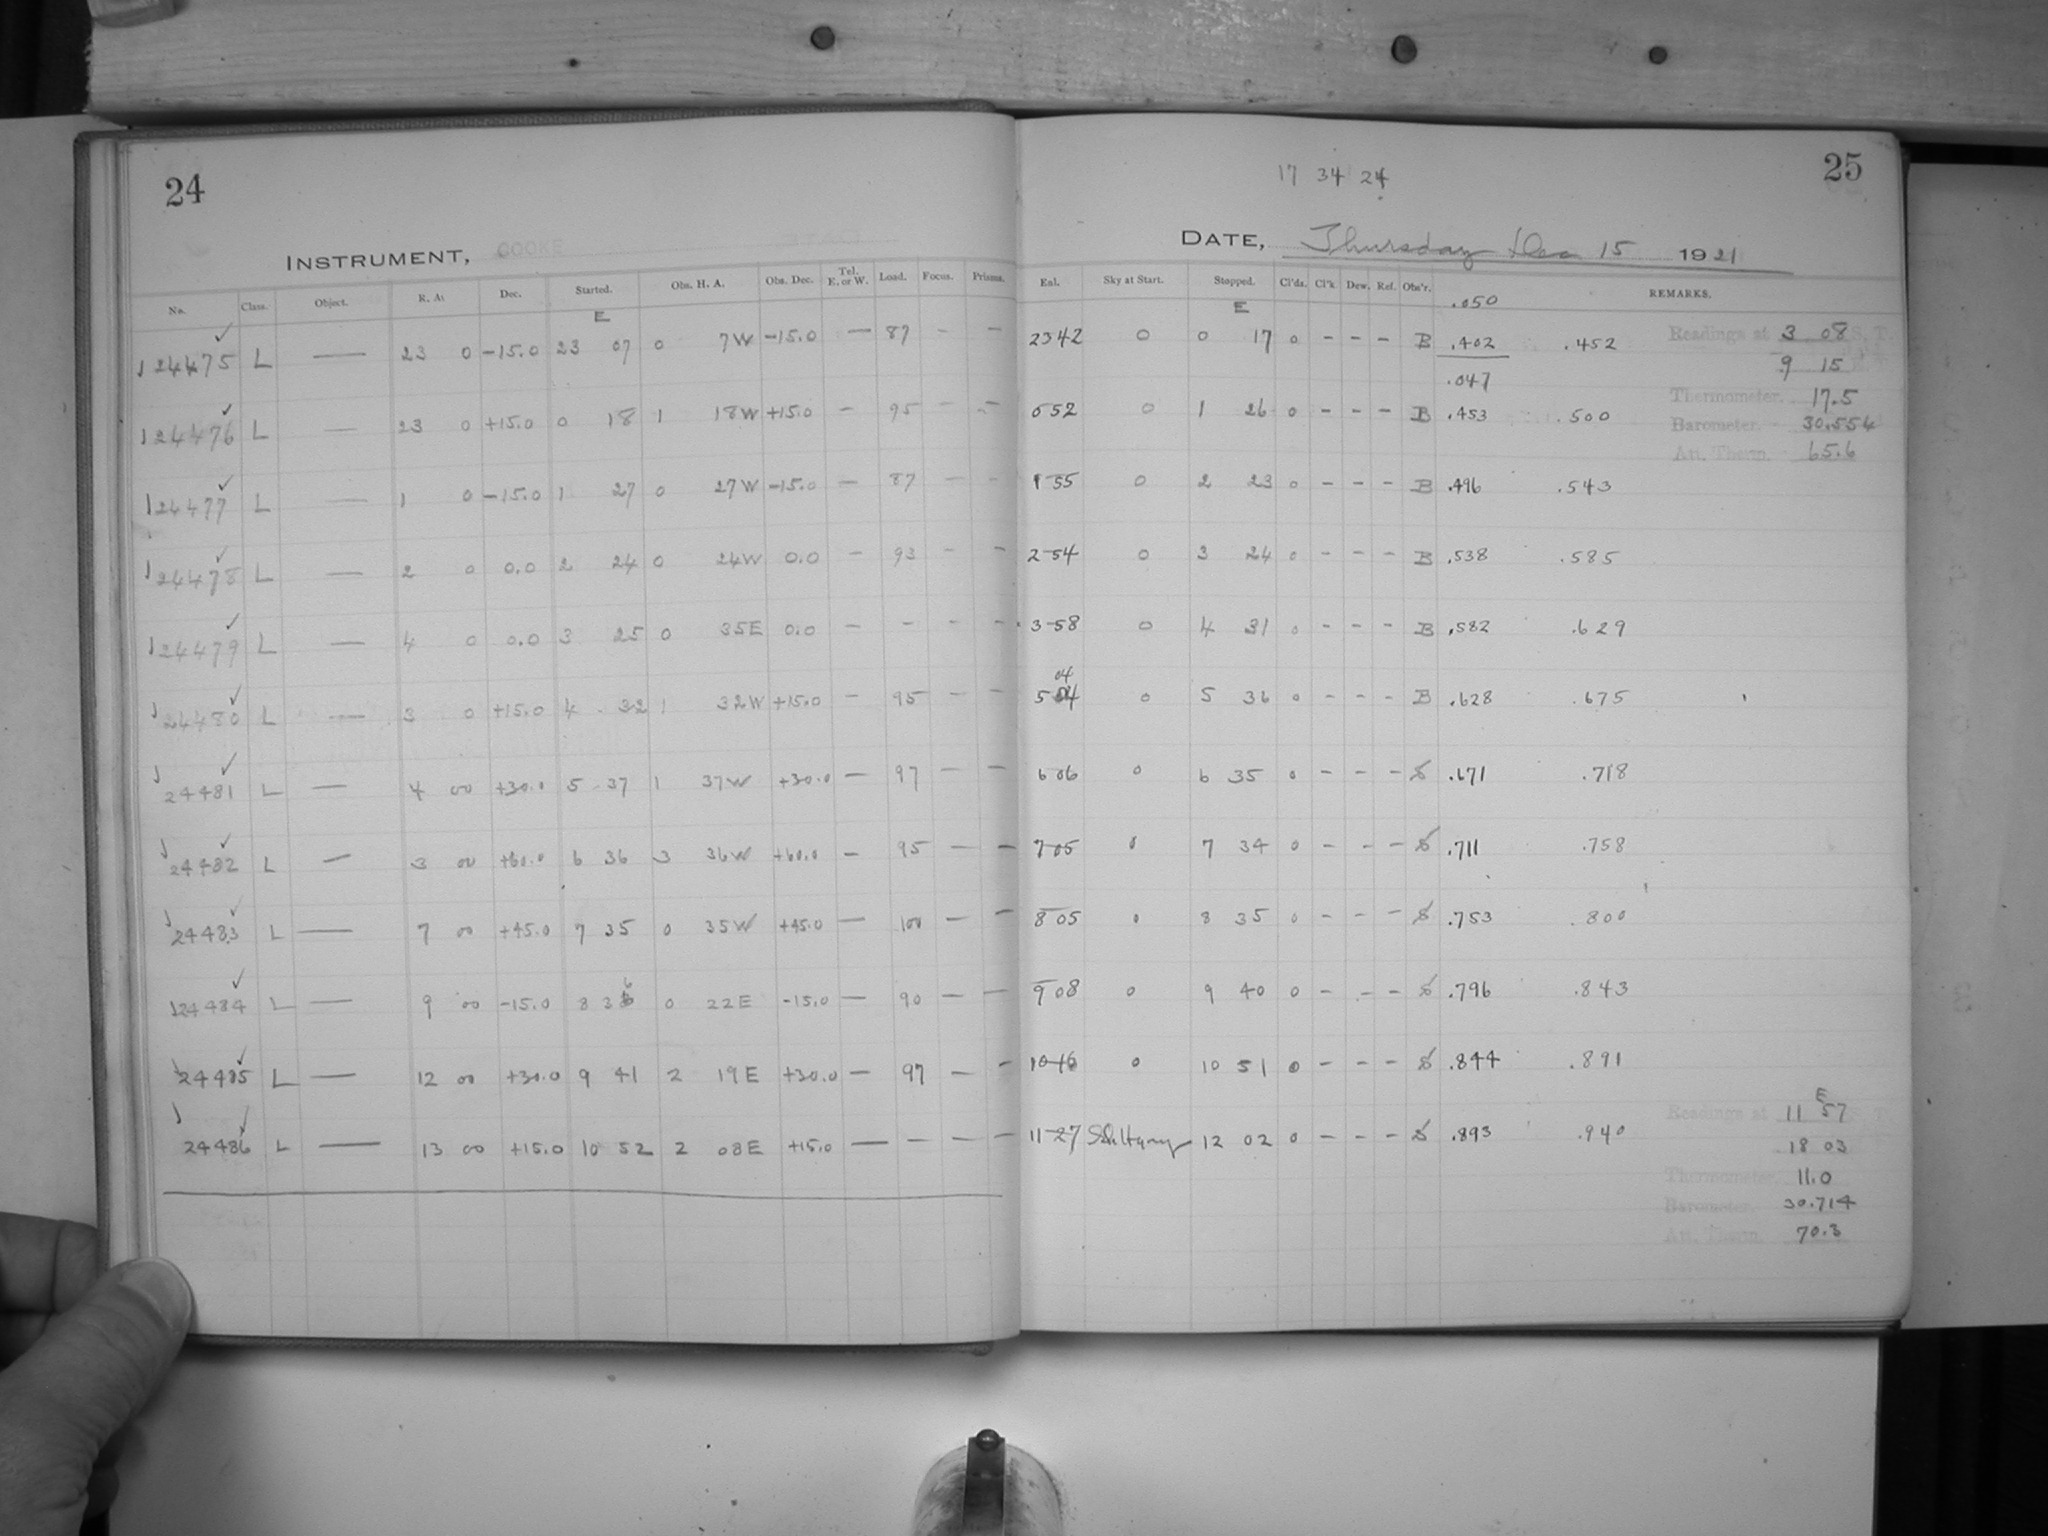 24
INSTRUMENT, COOKE
No. Class. Object. R. A. Dec. Started. Obs. H. A. Obs. Dec. Tel. E. or W. Load. Focus. Prisms.
E
24475 L — 23 0 -15.0 23 07 0 7W -15.0 — 87 - -
24476 L — 23 0 +15.0 0 18 1 18W +15.0 - 95 - -
24477 L — 1 0 -15.0 1 27 0 27W -15.0 - 87 - -
24478 L — 2 0 0.0 2 24 0 24W 0.0 - 93 - -
24479 L — 4 0 0.0 3 25 0 35E 0.0 - - - -
24480 L — 3 0 +15.0 4 32 1 32W +15.0 - 95 - -
24481 L — 4 00 +30.0 5 37 1 37W +30.0 — 97 - -
24482 L — 3 00 +60.0 6 36 3 36W +60.0 — 95 - -
24483 L — 7 00 +45.0 7 35 0 35W +45.0 — 100 - -
24484 L — 9 00 -15.0 8 36 0 22E -15.0 — 90 - -
24485 L — 12 00 +30.0 9 41 2 19E +30.0 — 97 - -
24486 L — 13 00 +15.0 10 52 2 08E +15.0 — - - -
25
17 34 24
DATE, Thursday Dec 15 1921
Eal. Sky at Start. Stopped. Cl'ds. Cl'k Dew. Ref. Obs'r. REMARKS.
E .050
2342 0 0 17 0 - - - B .402 .452 Readings at 3 08 S. T.
9 15
.047
052 0 1 26 0 - - - B .453 .500 Thermometer. 17.5
Barometer. 30.554
Att. Therm. 65.6
1 55 0 2 23 0 - - - B .496 .543
2 54 0 3 24 0 - - - B .538 .585
3 58 0 4 31 0 - - - B .582 .629
04
5 04 0 5 36 0 - - - B .628 .675
6 06 0 6 35 0 - - - S .671 .718
7 05 0 7 34 0 - - - S .711 .758
8 05 0 8 35 0 - - - S .753 .800
9 08 0 9 40 0 - - - S .796 .843
10 16 0 10 51 0 - - - S .844 .891
11 27 12 02 0 - - - S .893 .940
E
Readings at 11 57 S. T.
18 03
Thermometer. 11.0
Barometer. 30.714
Att. Therm. 70.3